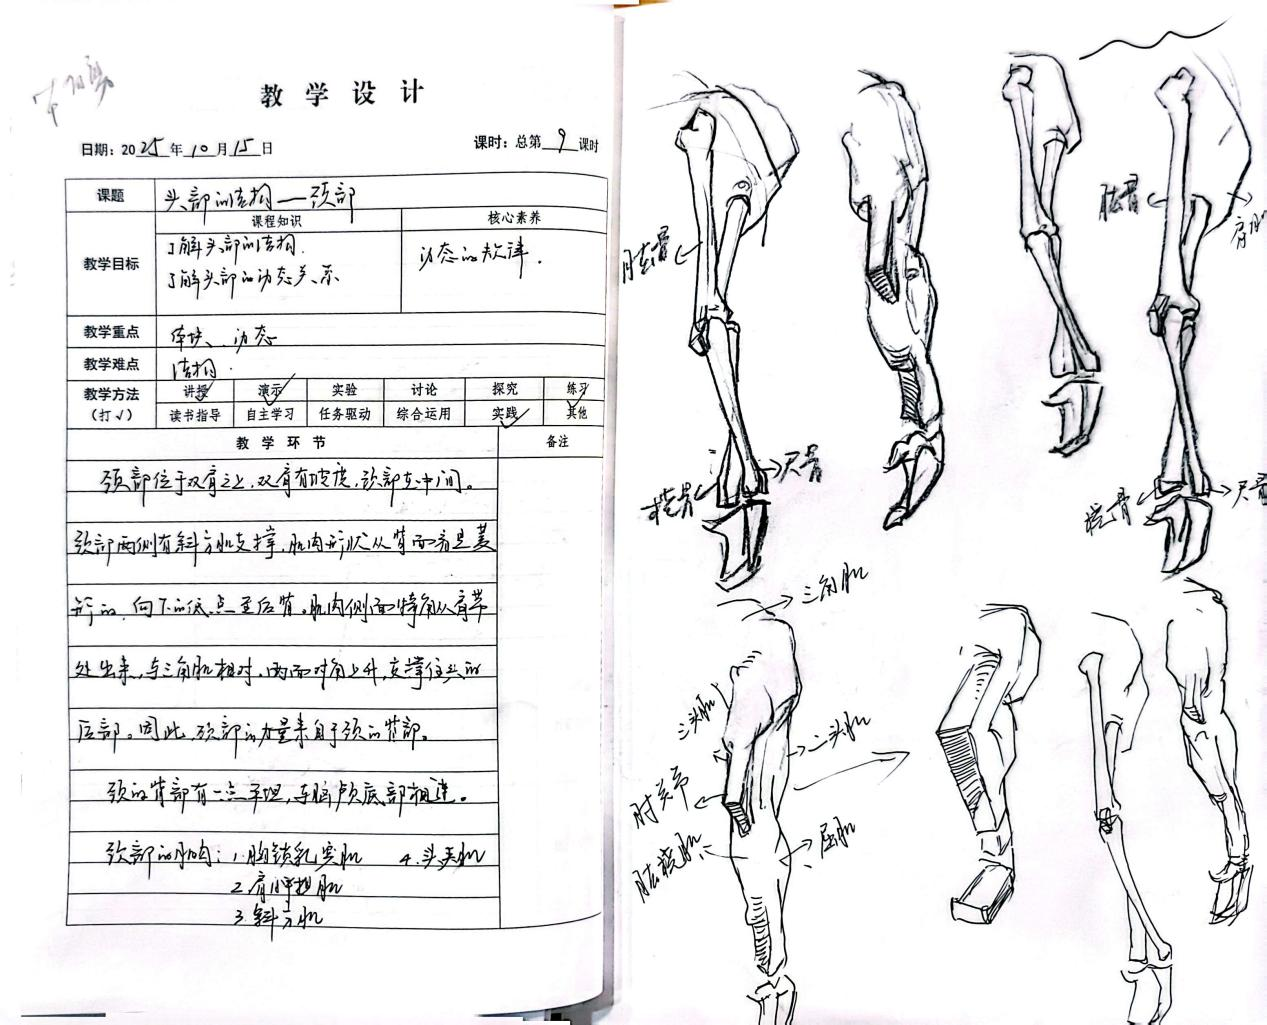 教 学 设 计
日期：2025年10月15日 课时：总第9课时
课题 头部的结构——颈部
课程知识 核心素养
教学目标
了解头部的结构. 动态的规律.
了解头部的动态关系
教学重点 体块、动态
教学难点 结构.
教学方法（打√） 讲授√ 演示√ 实验 讨论 探究 练习√
读书指导 自主学习 任务驱动 综合运用 实践√ 其他
教 学 环 节 备注
颈部位于双肩之上,双肩有坡度,颈部在中间。
颈部两侧有斜方肌支撑,肌肉形状从背面看是菱
形的,向下的低点至后背。肌肉侧面转角从肩带
处出来,与三角肌相对,两面对角上升,支撑住头的
后部。因此,颈部的力量来自于颈的背部。
颈的背部有一点平坦,与脑颅底部相连。
颈部的肌肉:1.胸锁乳突肌 4.头夹肌
2.肩胛提肌
3.斜方肌
肱骨
桡骨
尺骨
肱骨
桡骨
尺骨
三角肌
三头肌
二头肌
肘关节
肱桡肌
屈肌